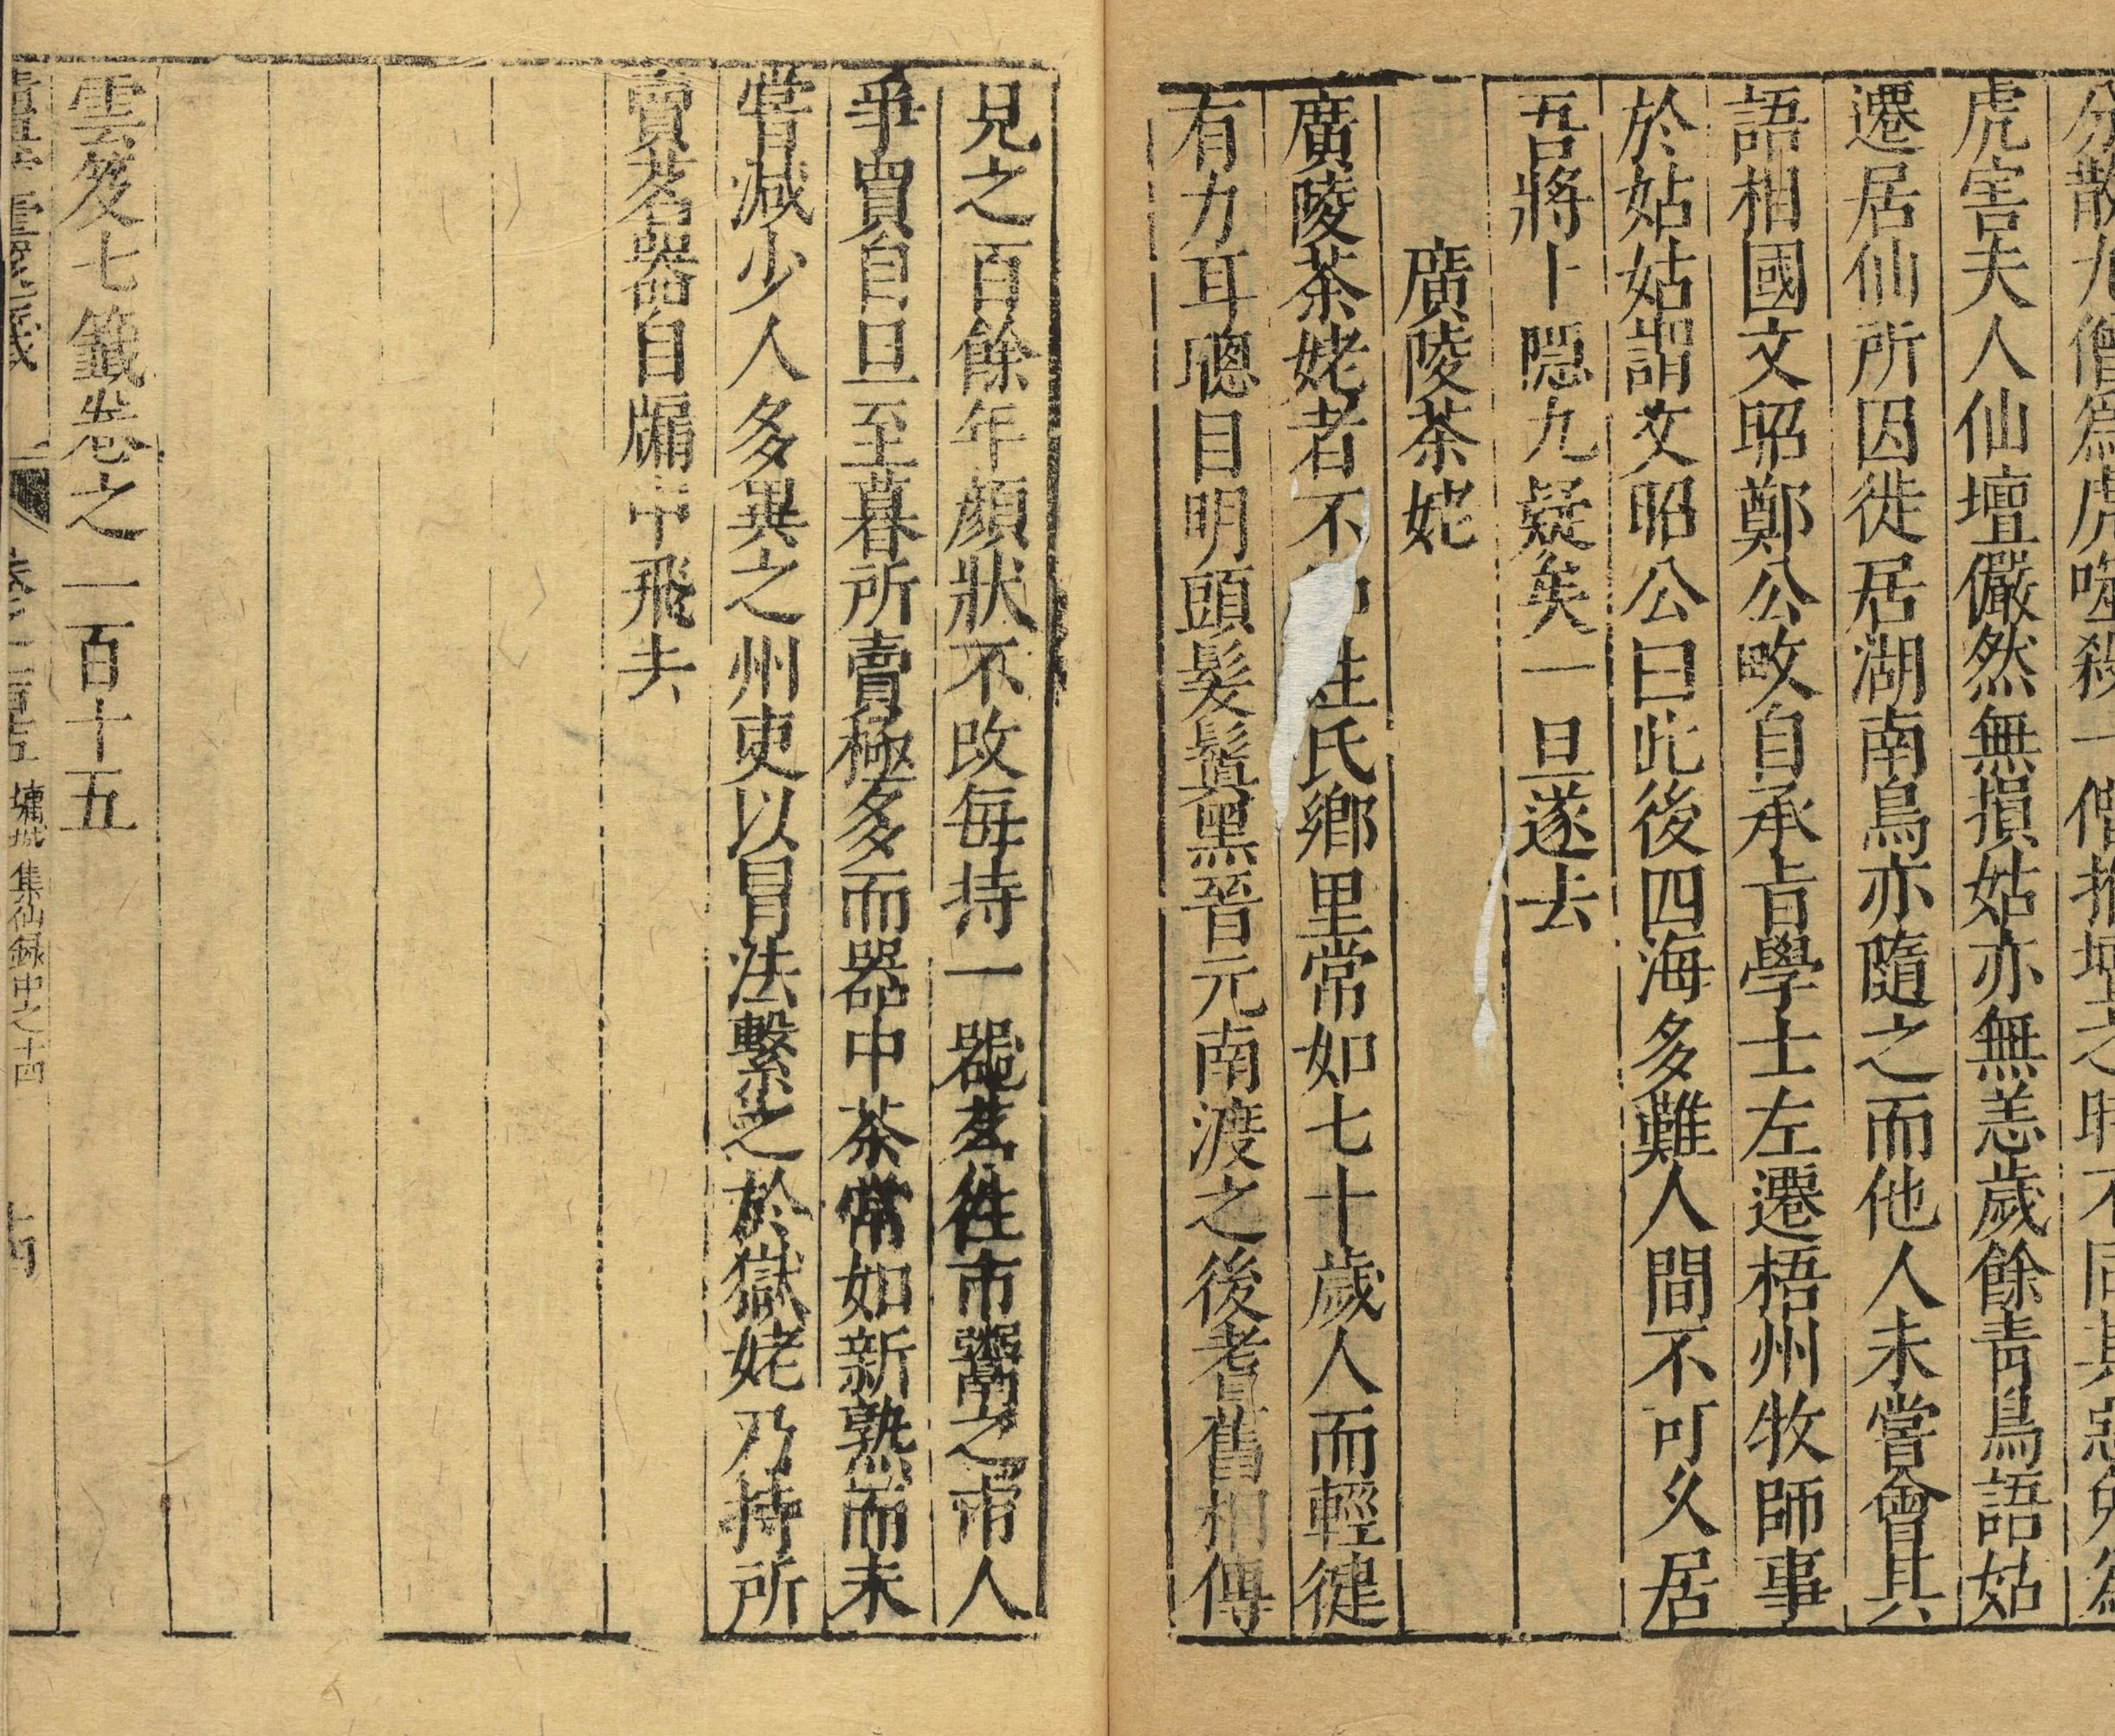 分散九僧爲虎噬殺一僧推壇之時不同其惡免爲
虎害夫人仙壇儼然無損姑亦無恙歲餘青鳥語姑
遷居仙所因徙居湖南鳥亦隨之而他人未嘗會其
語相國文昭鄭公畋自承旨學士左遷梧州牧師事
於姑姑謂文昭公曰此後四海多難人間不可久居
吾將卜隱九疑矣一旦遂去
廣陵茶姥
廣陵茶姥者不 氏鄉里常如七十歲人而輕健
有力耳聰目明頭髮鬒黑晉元南渡之後耆舊相傳
見之百餘年顏狀不改每持一器茗往市鬻之市人
爭買自旦至暮所賣極多而器中茶常如新熟而未
嘗減少人多異之州吏以冒法繫之於獄姥乃持所
賣茗器自牖中飛去
雲笈七籤卷之一百十五
墉城集仙録中之十四